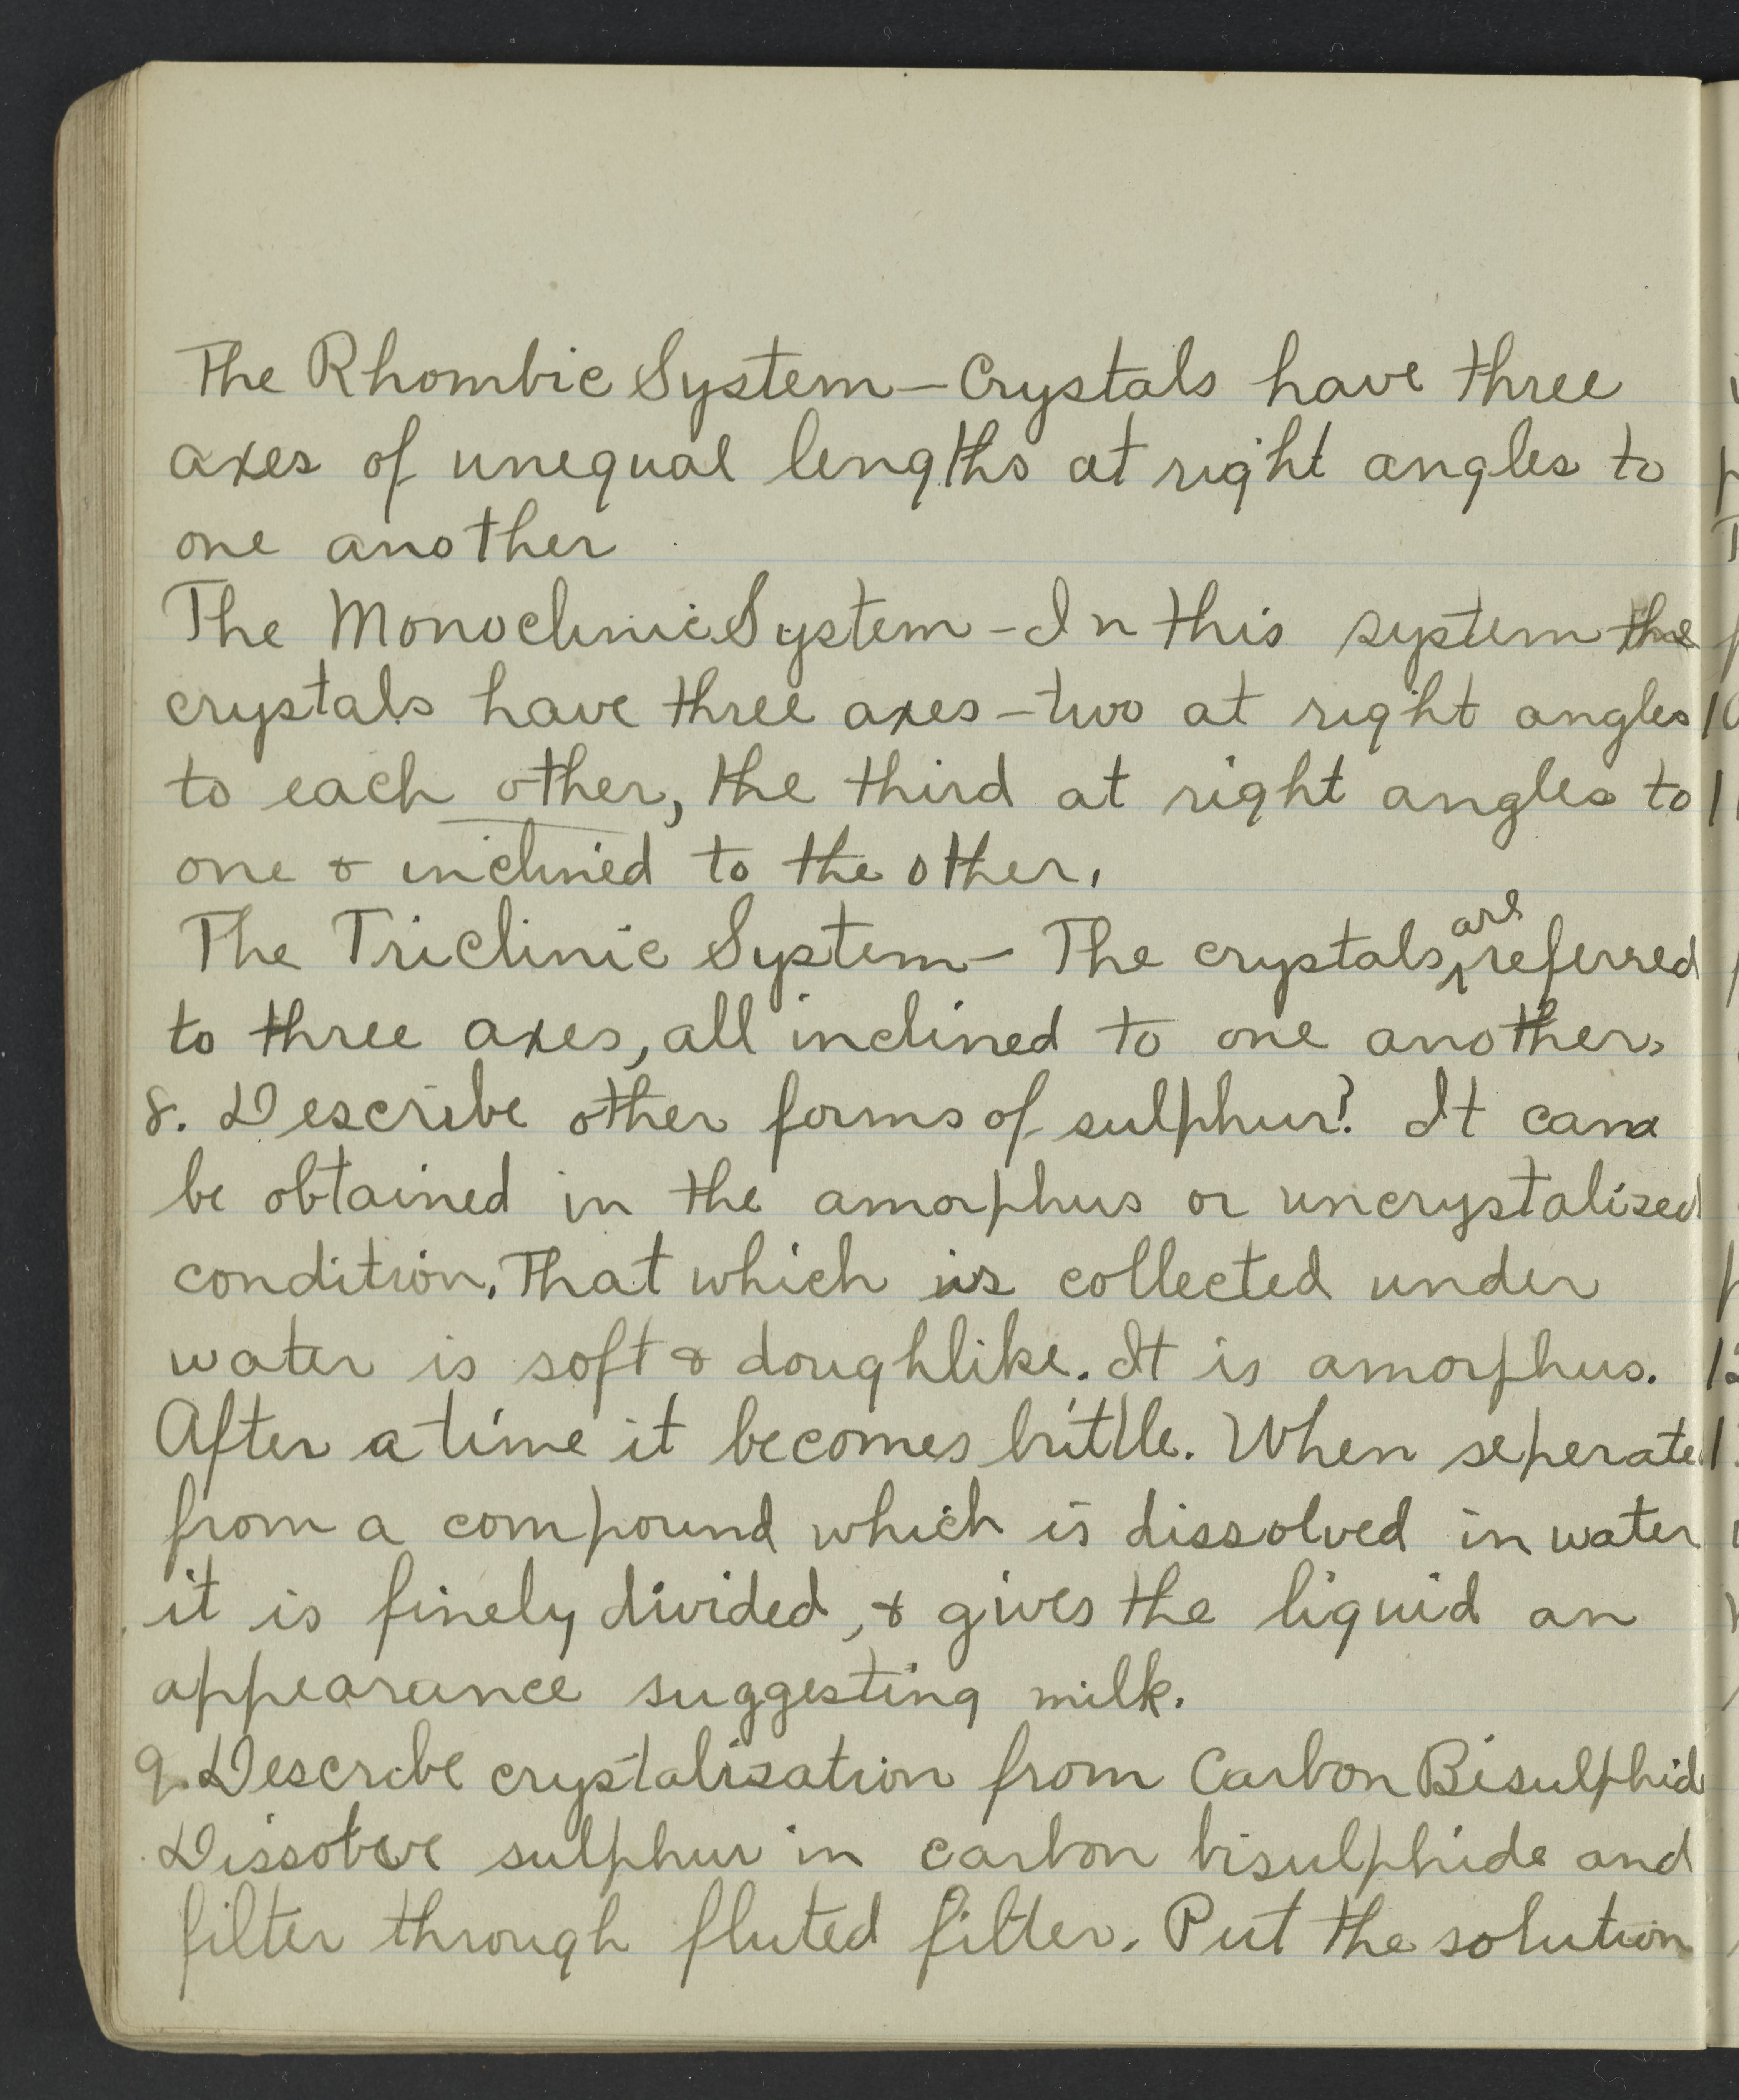 The Rhombic System — Crystals have three
axes of unequal lengths at right angles to
one another
The Monoclinic System — In this system the
crystals have three axes — two at right angles
to each other, the third at right angles to
one & inclined to the other.
The Triclinic System — The crystals are referred
to three axes, all inclined to one another.
8. Describe other forms of sulphur? It can
be obtained in the amorphus or uncrystalized
condition. That which is collected under
water is soft & doughlike. It is amorphus.
After a time it becomes brittle. When seperated
from a compound which is dissolved in water
it is finely divided, & gives the liquid an
appearance suggesting milk.
9. Describe crystalization from Carbon Bisulphide
Dissolve sulphur in carbon bisulphide and
filter through fluted filter. Put the solution